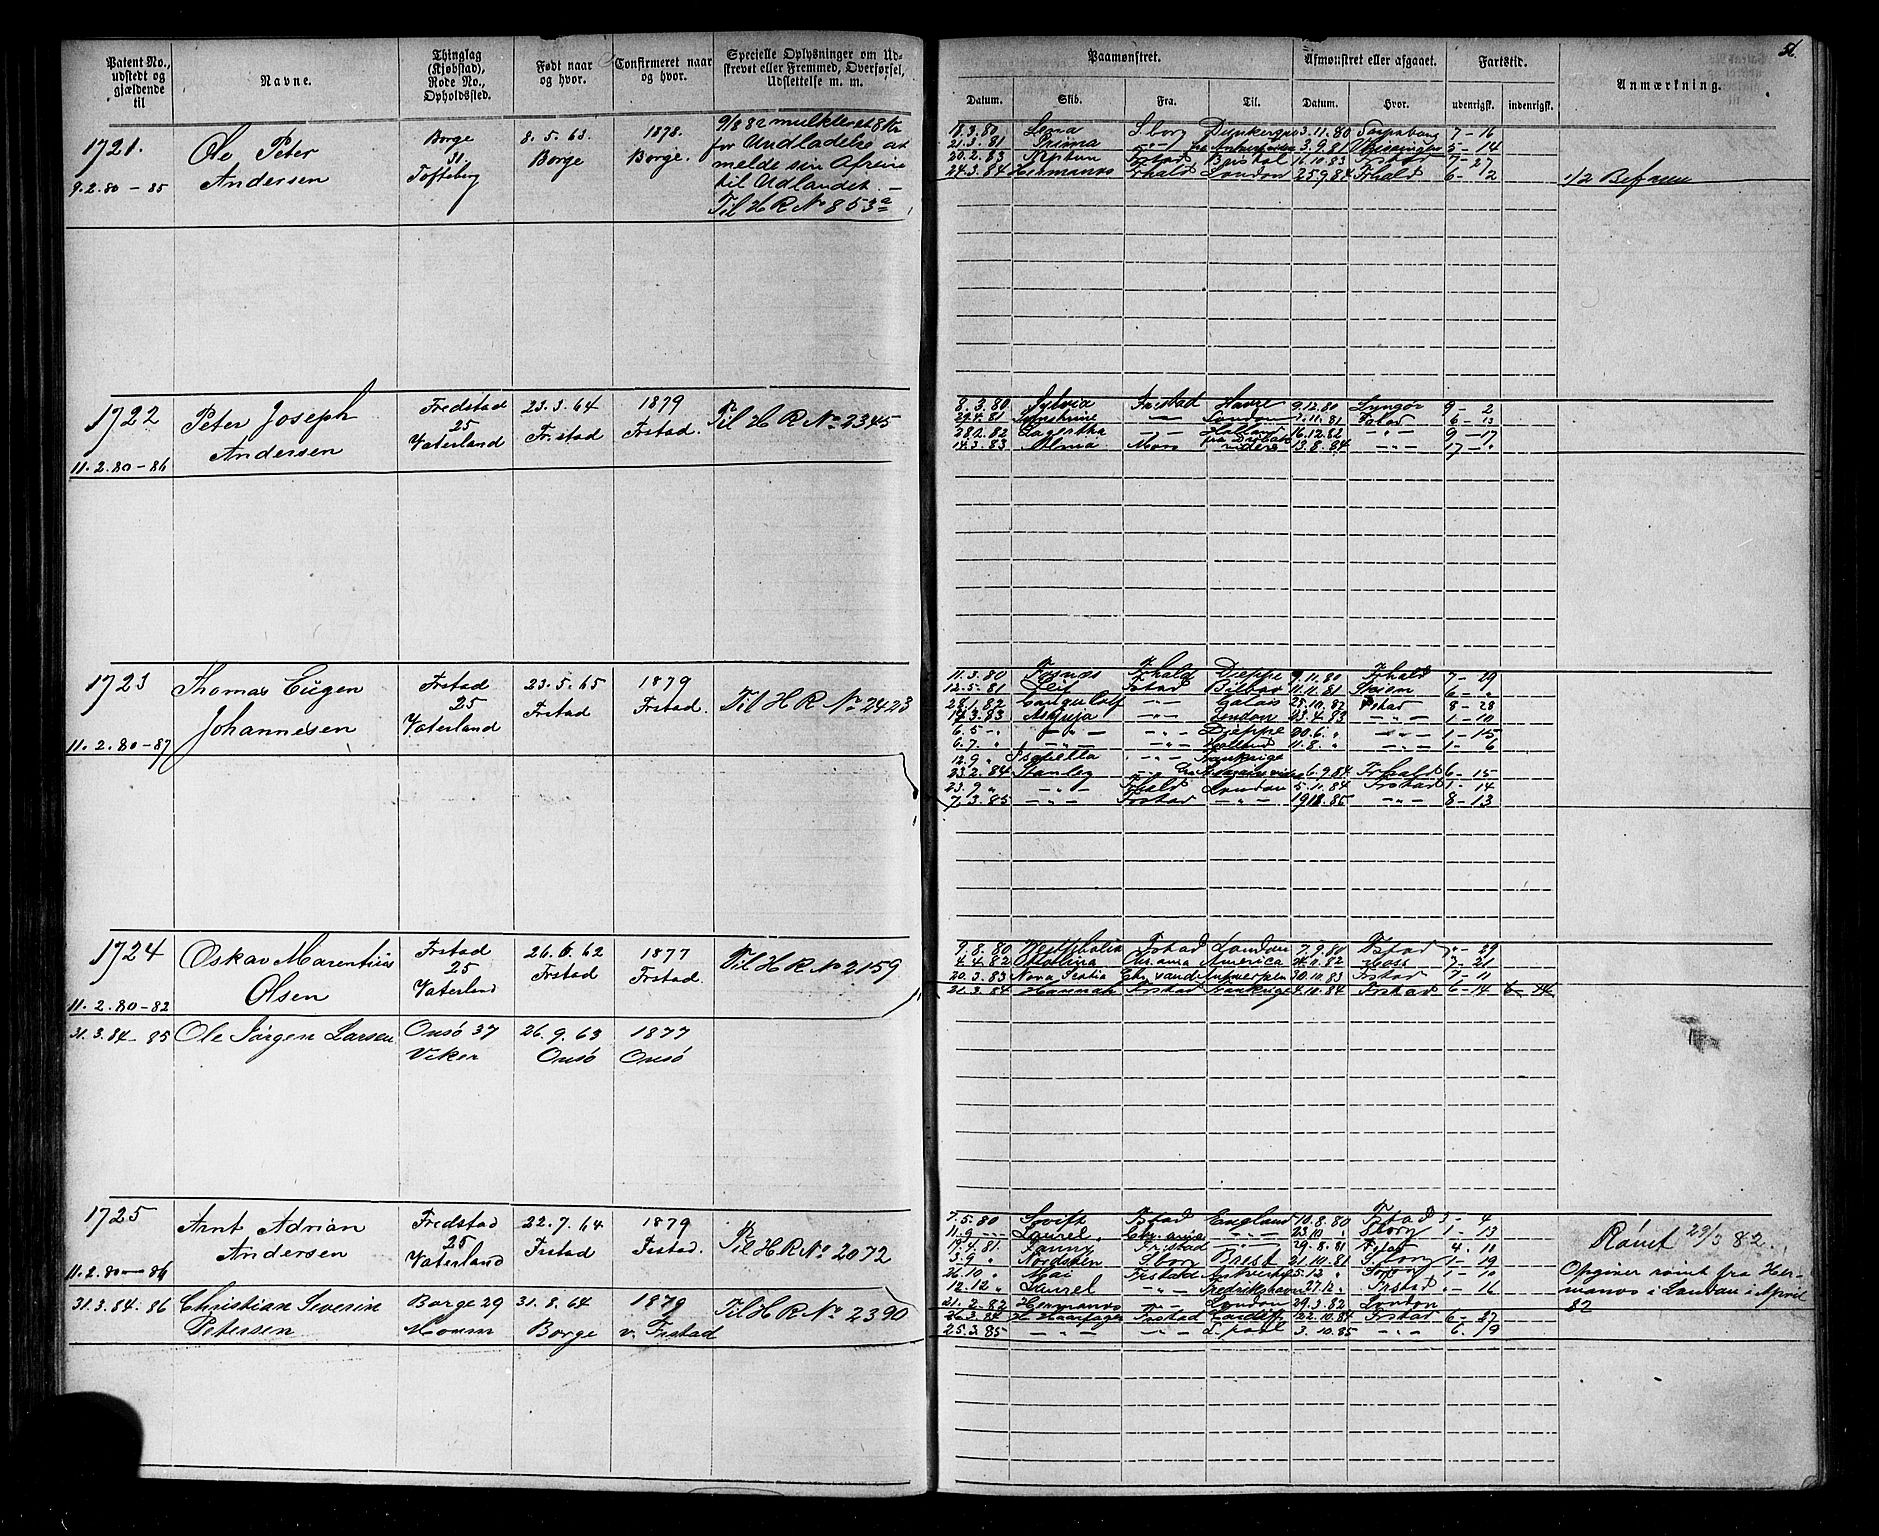 Patent No., udstedt og gjældende til
Navne.
Thinglag (Kjøbstad), Rode No., Opholdssted.
Født naar og hvor.
Confirmeret naar og hvor.
Specielle Oplysninger om Udskrevet eller Fremmed, Overførsel, Udslettelse m. m.
Paamønstret.
Afmønstret eller afgaaet.
Fartstid.
Anmærkning.
51.
Datum.
Skib.
Fra.
Til.
Datum.
Hvor.
udenrigsk.
indenrigsk.
1721.
9.2.80 - 85
Ole Peter
Andersen
Borge
31
Tofteberg
8.5.63.
Borge
1878.
Borge.
9/8 82 mulkteret 8 Kr
for Undladelse at
melde sin Afreise
til Udlandet. —
Til H R No 853a
18.3.80 Lena S.borg Dynkerque 3.11.80 Sarpsborg 7 - 16
21.3.81 Prima -"- 3.9.81 Vlissingen 5 - 14
20.2.83 Neptun Frstad Bristol 16.10.83 Frstad 7 - 27
24.3.84 Hermanos Frhald London 25.9.84 Frhald 6 - 2
1/2 Befaren
1722
11.2.80 - 86
Peter Joseph
Andersen
Fredstad
25
Vaterland
23.3.64
Fr.stad
1879
Frstad.
Til H R No 2345
8.3.80 Sylvia Fristad Havre 9.12.80 Lyngør 9 - 2
24.4.81 -"- London 11.81 Fstad 6 - 13
28.2.82 Lagertha -"- Holland 16.12.82 -"- 9 - 17
14.3.83 Alma Moss 13.8.84 -"- 17 - "
1723
11.2.80 - 87
Thomas Eugen
Johannesen
Frstad
25
Vaterland
23.5.65
Frstad
1879
Frstad.
Til H R No 2423
11.3.80 Fosnæs Fhald Dieppe 9.11.80 Frhald 7 - 29
12.5.81 Leif Fstad Bilbao 11.11.81 6 - "
28.1.82 -"- Calais 25.10.82 Fstad 8 - 28
14.3.83 -"- London 23.4.83 -"- 1 - 10
6.5 - " -"- -"- Dieppe 20.6. " -"- 1 - 15
6.7. " -"- -"- Holland 11.8. " -"- 1 - 6
12.9 " Isabella -"- Frankrige
23.2.84 Stanley -"- 6.9.84 Fr.hald 6 - 15
23.9 " -"- Fhald London 5.11.84 Frstad 1 - 14
7.3.85 -"- Frstad -"- 19.11.85 -"- 8 - 13
1724
11.2.80 - 82
Oskar Marentius
Olsen
Frstad
25
Vaterland
26.6.62
Frstad
1877
Frstad.
Til H R No 2159
9.8.80 Westphalia Frstad London 7.9.80 Fstad " - 29
4.4.82 Ottolina Chr.ania America 82 Moss 21
20.3.83 Nova Scotia Chr.sand Antwerpen 30.10.83 Frstad 7 - 11
21.3.84 Hannah Frstad Frankrige 4.10.84 Frstad 6 - 14 6 - 14
31.3.84 - 85
Ole Jørgen Larsen
Onsö 37
Viker
26.9.63
Onsö
1877
Onsö
1725
11.2.80 - 84
Arnt Adrian
Andersen
Fredstad
25
Vaterland
22.7.64
Frstad
1879
Frstad.
Til H R No 2072
7.5.80 Swift Fstad England 10.8.80 Fstad 3 - 4
11.9 - " - Laurel. Chr.ania -"- 23.10 " S.borg 1 - 13
17.4.81. Fanny Fristad -"- 29.8.81 Fstad 4. 11
3.9 " Nordstien S.borg Brest 21.10.81 S.borg 1 - 19
26.10 " Mai Frstad Antwerpen 5.12 " 1 - 10
12.12 " Laurel -"- Fredrikshavn 27.12. " Frstad " - 16
21.2.82 Hermanos -"- London 29.3.82 London
Rømt 29/3 82.
Opgiver rømt fra Her-
manos i London i April
82
31.3.84 - 86
Christian Severin
Petersen
Borge 29
Moum
31.8.64
Borge
1879
v. Frstad
Til H R No 2390
26.3.84 H Haarfager Frstad Cardiff 22.10.84 Frstad 6 - 27
25.3.85 -"- -"- L.pool 3.10.85 -"- 6. 9